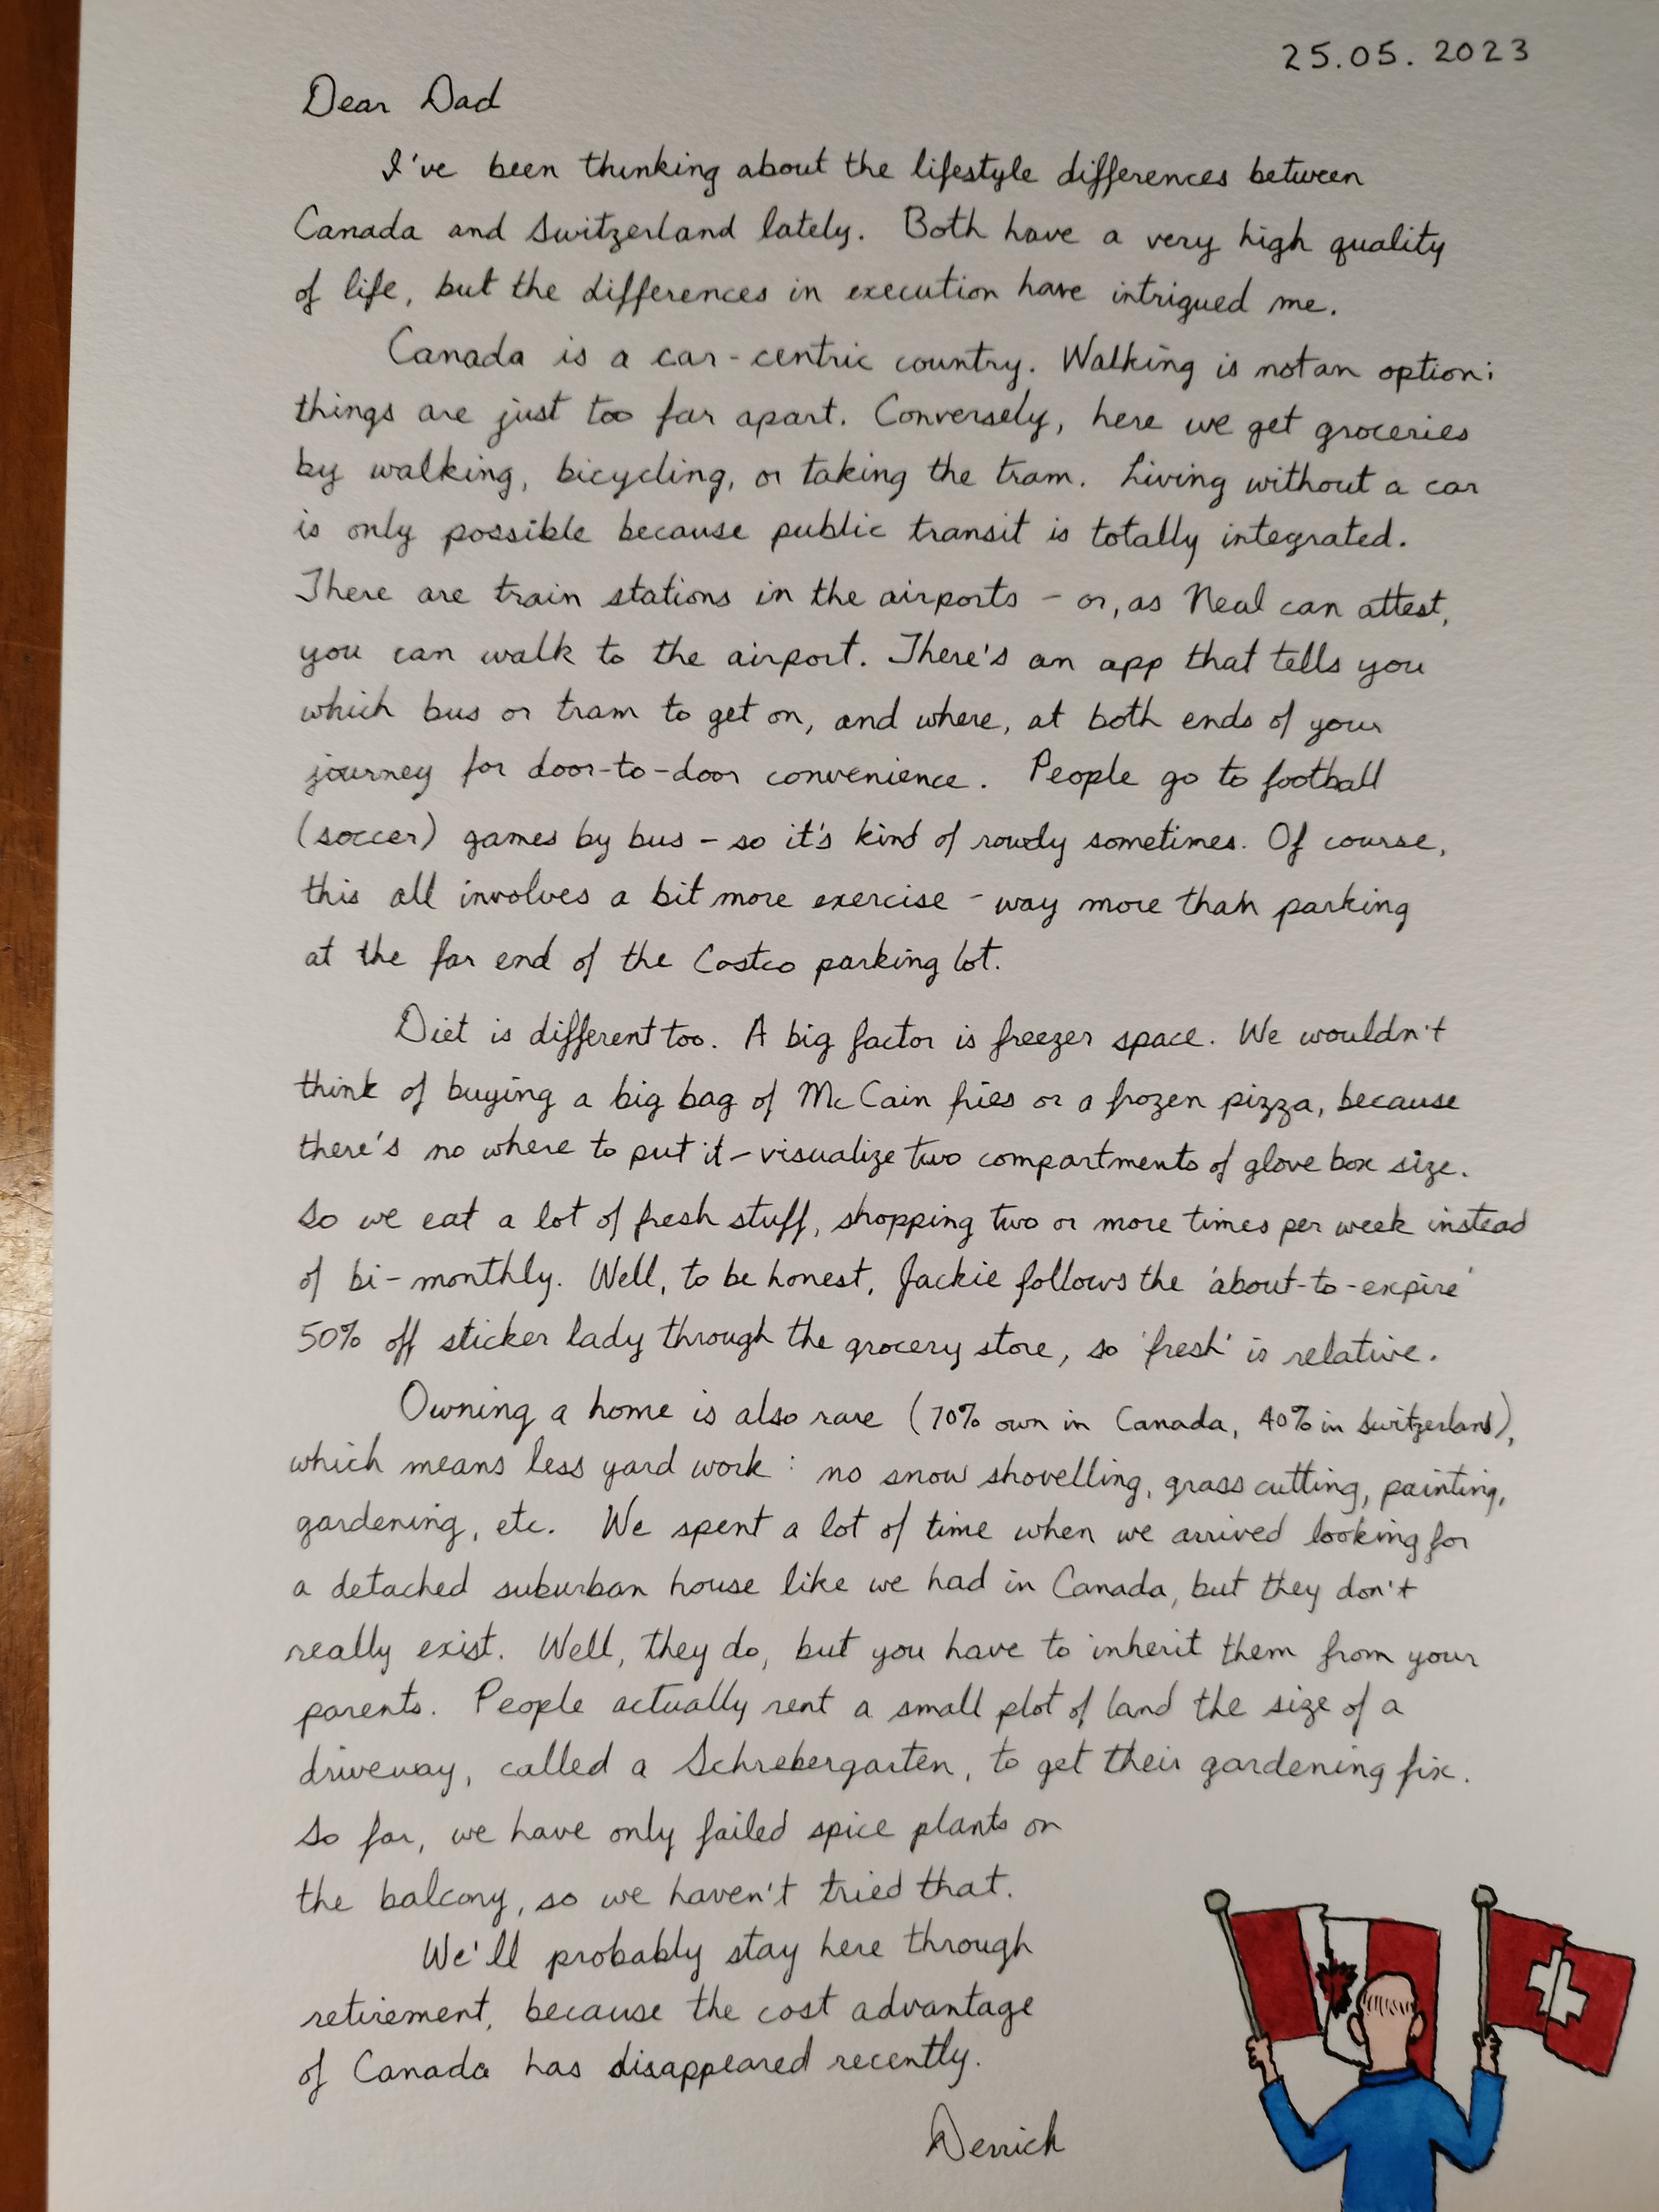 25.05.2023
Dear Dad
I've been thinking about the lifestyle differences between
Canada and Switzerland lately. Both have a very high quality
of life, but the differences in execution have intrigued me.
Canada is a car-centric country. Walking is not an option;
things are just too far apart. Conversely, here we get groceries
by walking, bicycling, or taking the tram. Living without a car
is only possible because public transit is totally integrated.
There are train stations in the airports - or, as Neal can attest,
you can walk to the airport. There's an app that tells you
which bus or tram to get on, and where, at both ends of your
journey for door-to-door convenience. People go to football
(soccer) games by bus - so it's kind of rowdy sometimes. Of course,
this all involves a bit more exercise - way more than parking
at the far end of the Costco parking lot.
Diet is different too. A big factor is freezer space. We wouldn't
think of buying a big bag of McCain fries or a frozen pizza, because
there's no where to put it - visualize two compartments of glove box size.
So we eat a lot of fresh stuff, shopping two or more times per week instead
of bi-monthly. Well, to be honest, Jackie follows the 'about-to-expire'
50% off sticker lady through the grocery store, so 'fresh' is relative.
Owning a home is also rare (70% own in Canada, 40% in Switzerland),
which means less yard work: no snow shovelling, grass cutting, painting,
gardening, etc. We spent a lot of time when we arrived looking for
a detached suburban house like we had in Canada, but they don't
really exist. Well, they do, but you have to inherit them from your
parents. People actually rent a small plot of land the size of a
driveway, called a Schrebergarten, to get their gardening fix.
So far, we have only failed spice plants on
the balcony, so we haven't tried that.
We'll probably stay here through
retirement, because the cost advantage
of Canada has disappeared recently.
Derrick